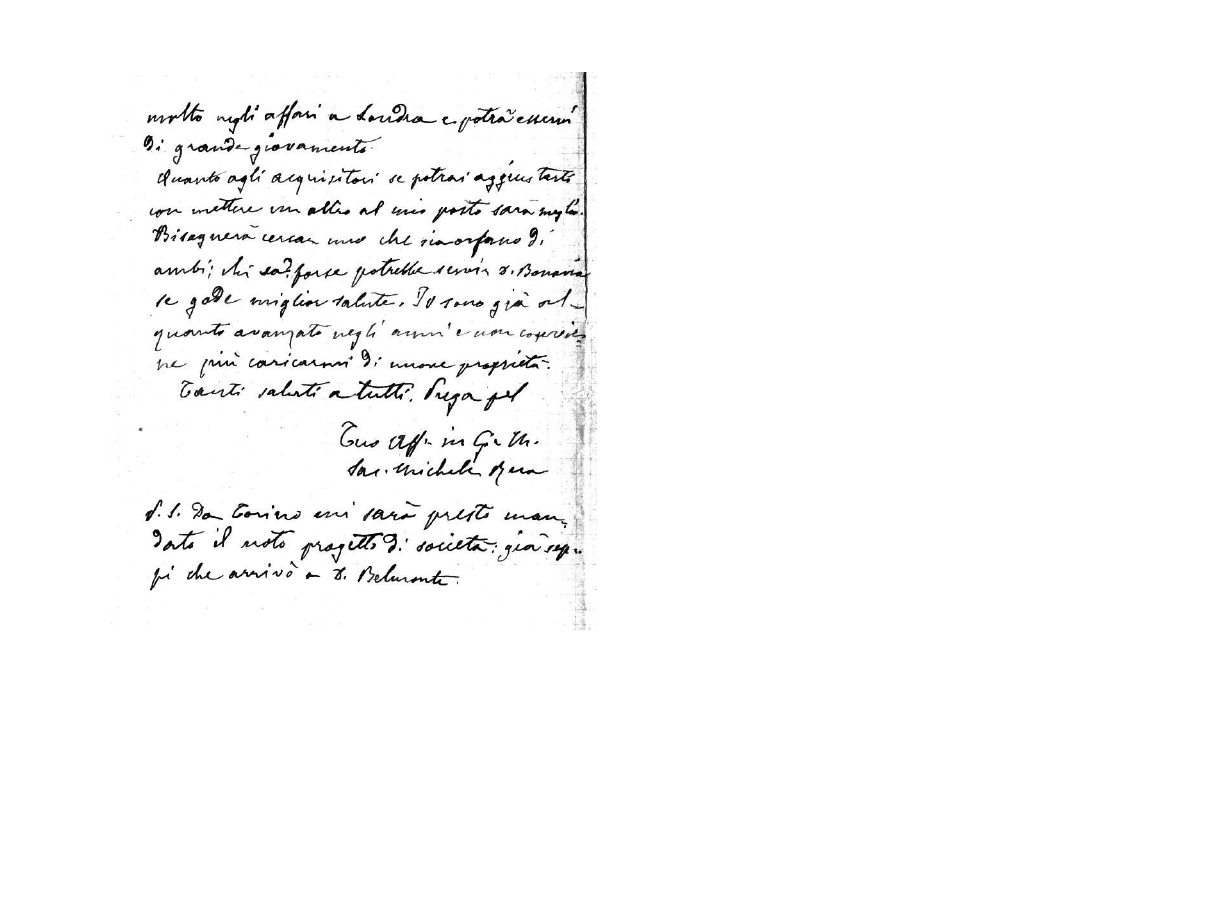 molto negli affari a Londra e potrà esservi
di grande giovamento.
Quanto agli acquisitori se potrai aggiustarti
con mettere un altro al mio posto sarà meglio.
Bisognerà cercar uno che sia orfano di
ambi; chi sa? forse potrebbe servir D. Bonavia
se gode miglior salute. Io sono già al-
quanto avanzato negli anni e non convie-
ne più caricarmi di nuove proprietà.
Tanti saluti a tutti. Prega pel
Tuo Aff. in G. e M.
Sac. Michele Rua
P. S. Da Torino mi sarà presto man-
dato il noto progetto di società: già sep-
pi che arrivò a D. Belmonte.